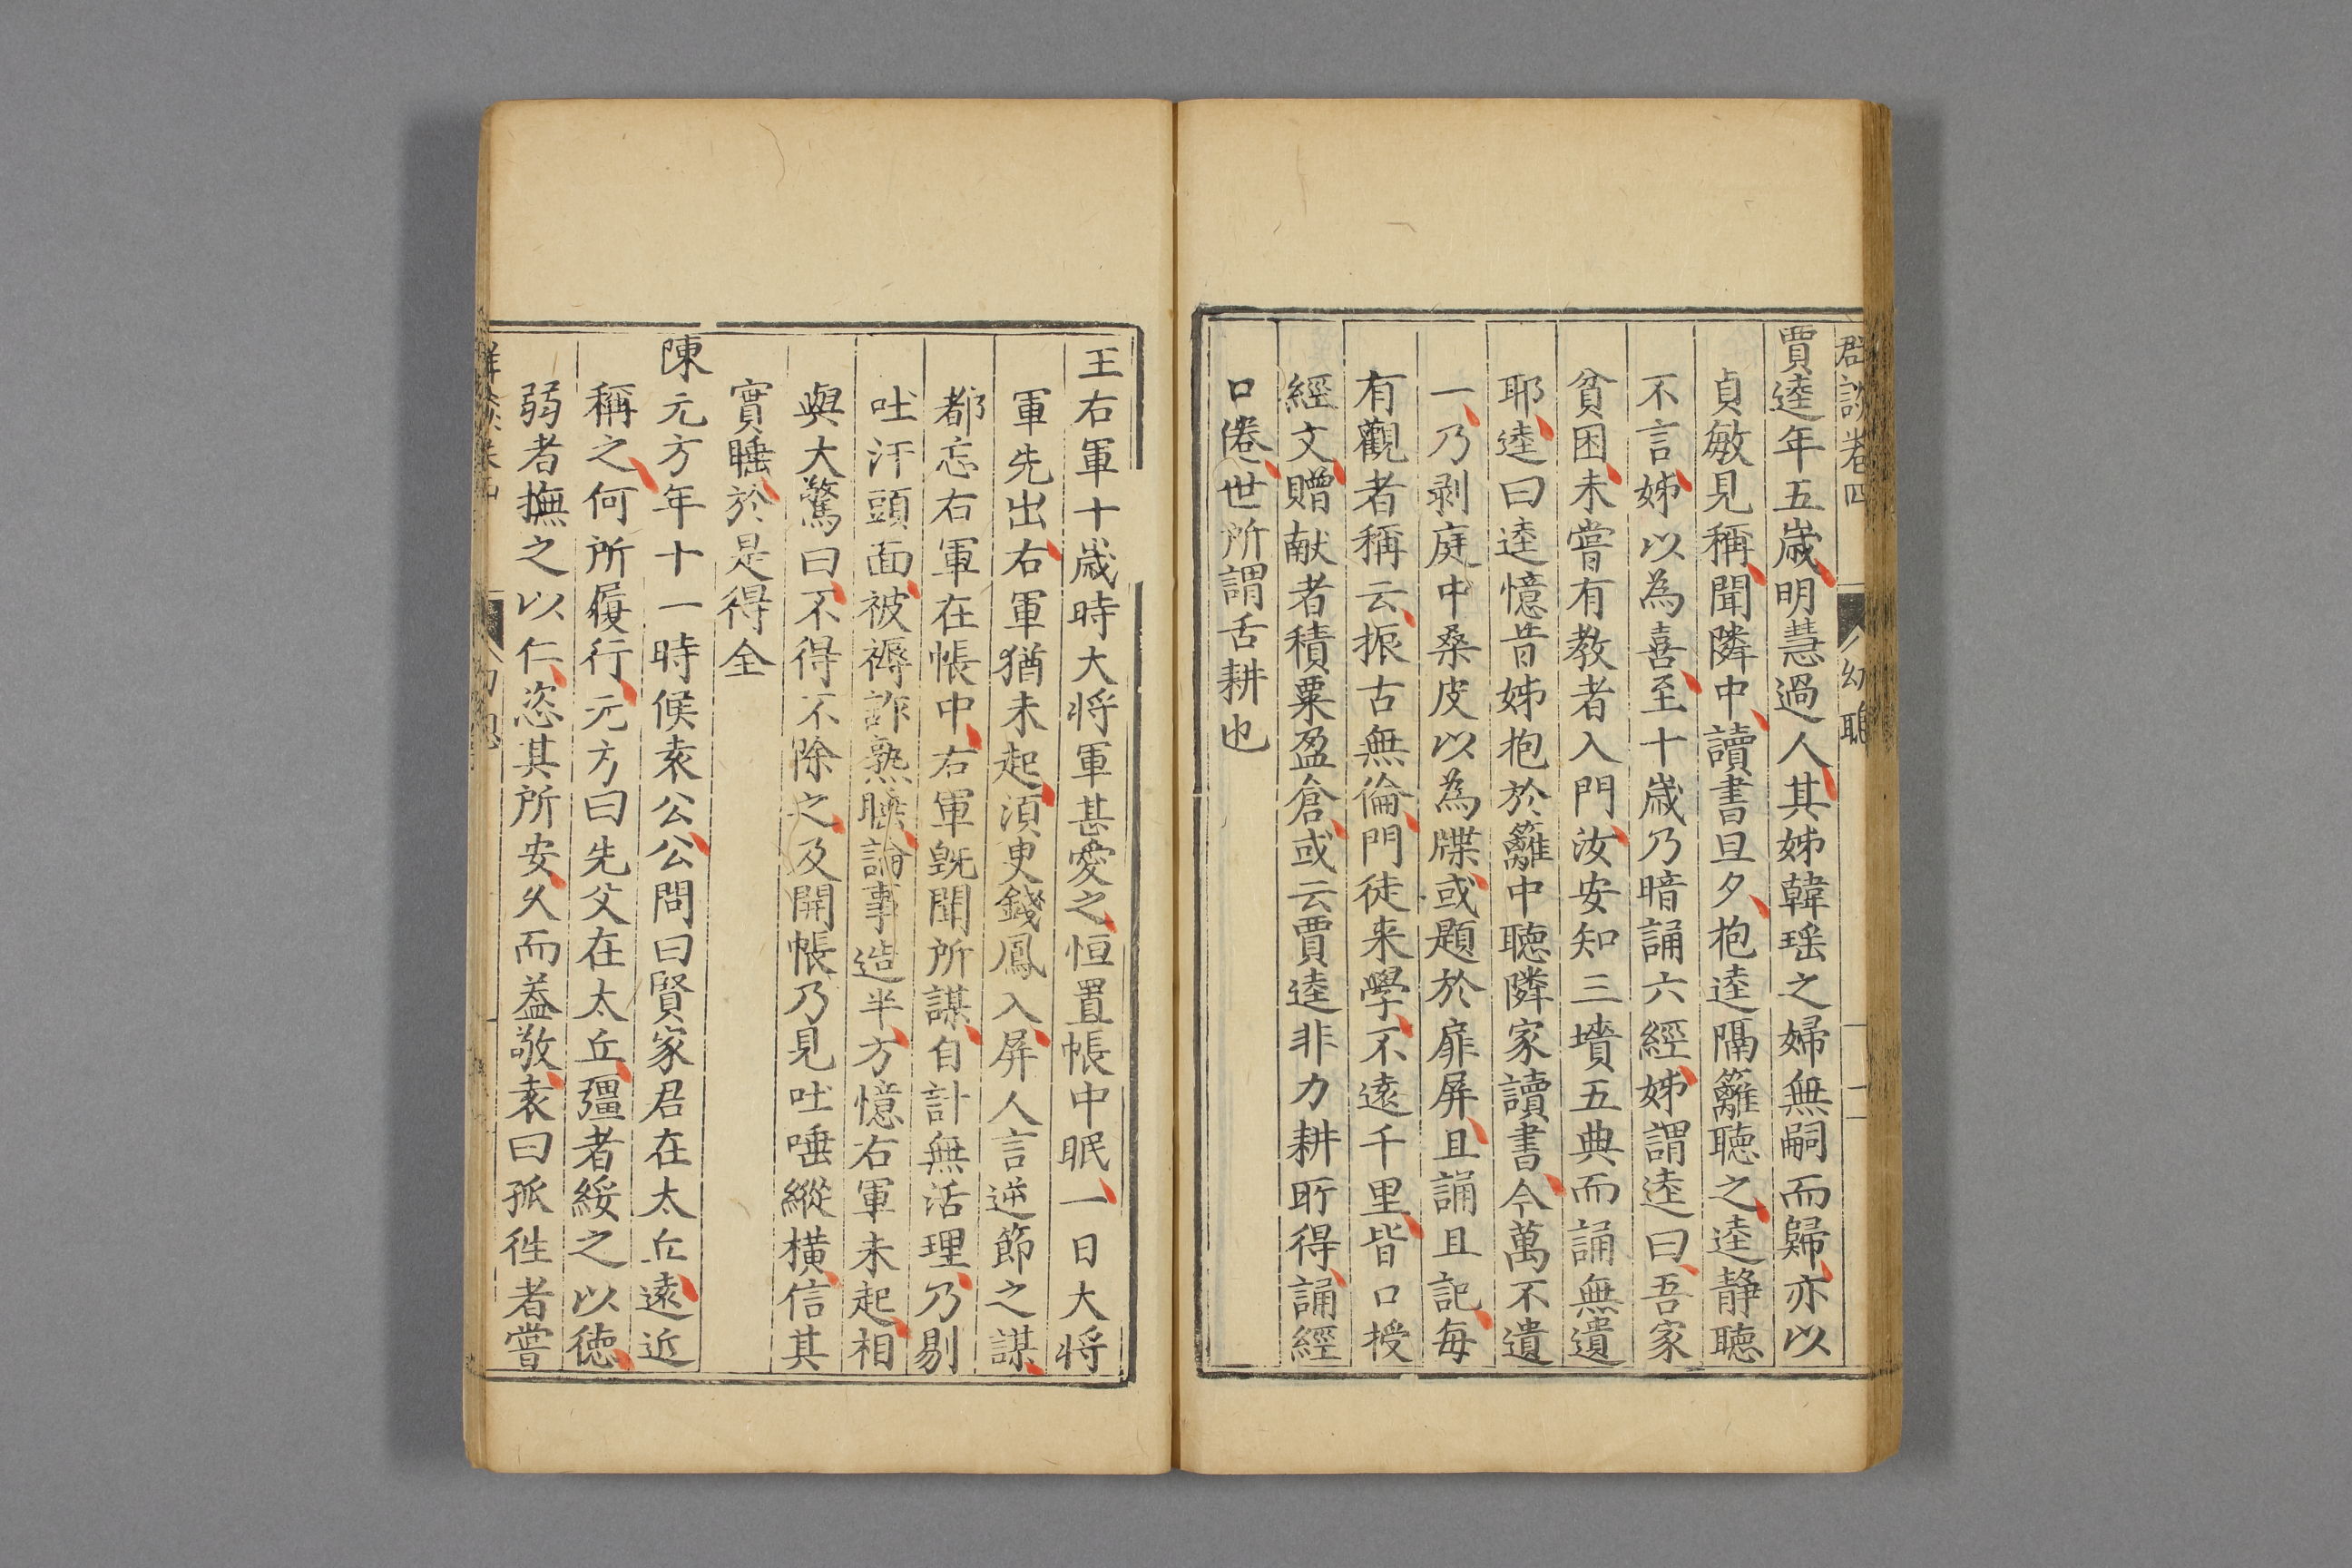 群談卷四 幼聰
賈逵年五歲明慧過人其姊韓瑤之婦無嗣而歸亦以
貞敏見稱聞隣中讀書旦夕抱逵隔籬聽之逵静聽
不言姊以為喜至十歲乃暗誦六經姊謂逵曰吾家
貧困未嘗有教者入門汝安知三墳五典而誦無遺
耶逵曰逵憶昔姊抱於籬中聽隣家讀書今萬不遺
一乃剥庭中桑皮以為牒或題於扉屏且誦且記每
有觀者稱云振古無倫門徒来學不遠千里皆口授
經文贈献者積粟盈倉或云賈逵非力耕所得誦經
口倦世所謂舌耕也
王右軍十歲時大将軍甚愛之恒置帳中眠一日大将
軍先出右軍猶未起湏臾錢鳳入屏人言逆節之謀
都忘右軍在帳中右軍旣聞所謀自計無活理乃剔
吐汙頭面被褥詐熟睡論事造半方憶右軍未起相
與大驚曰不得不除之及開帳乃見吐唾縱橫信其
實睡於是得全
陳元方年十一時候袁公公問曰賢家君在太丘遠近
稱之何所履行元方曰先父在太丘彊者綏之以德
弱者撫之以仁恣其所安久而益敬袁曰孤徃者嘗